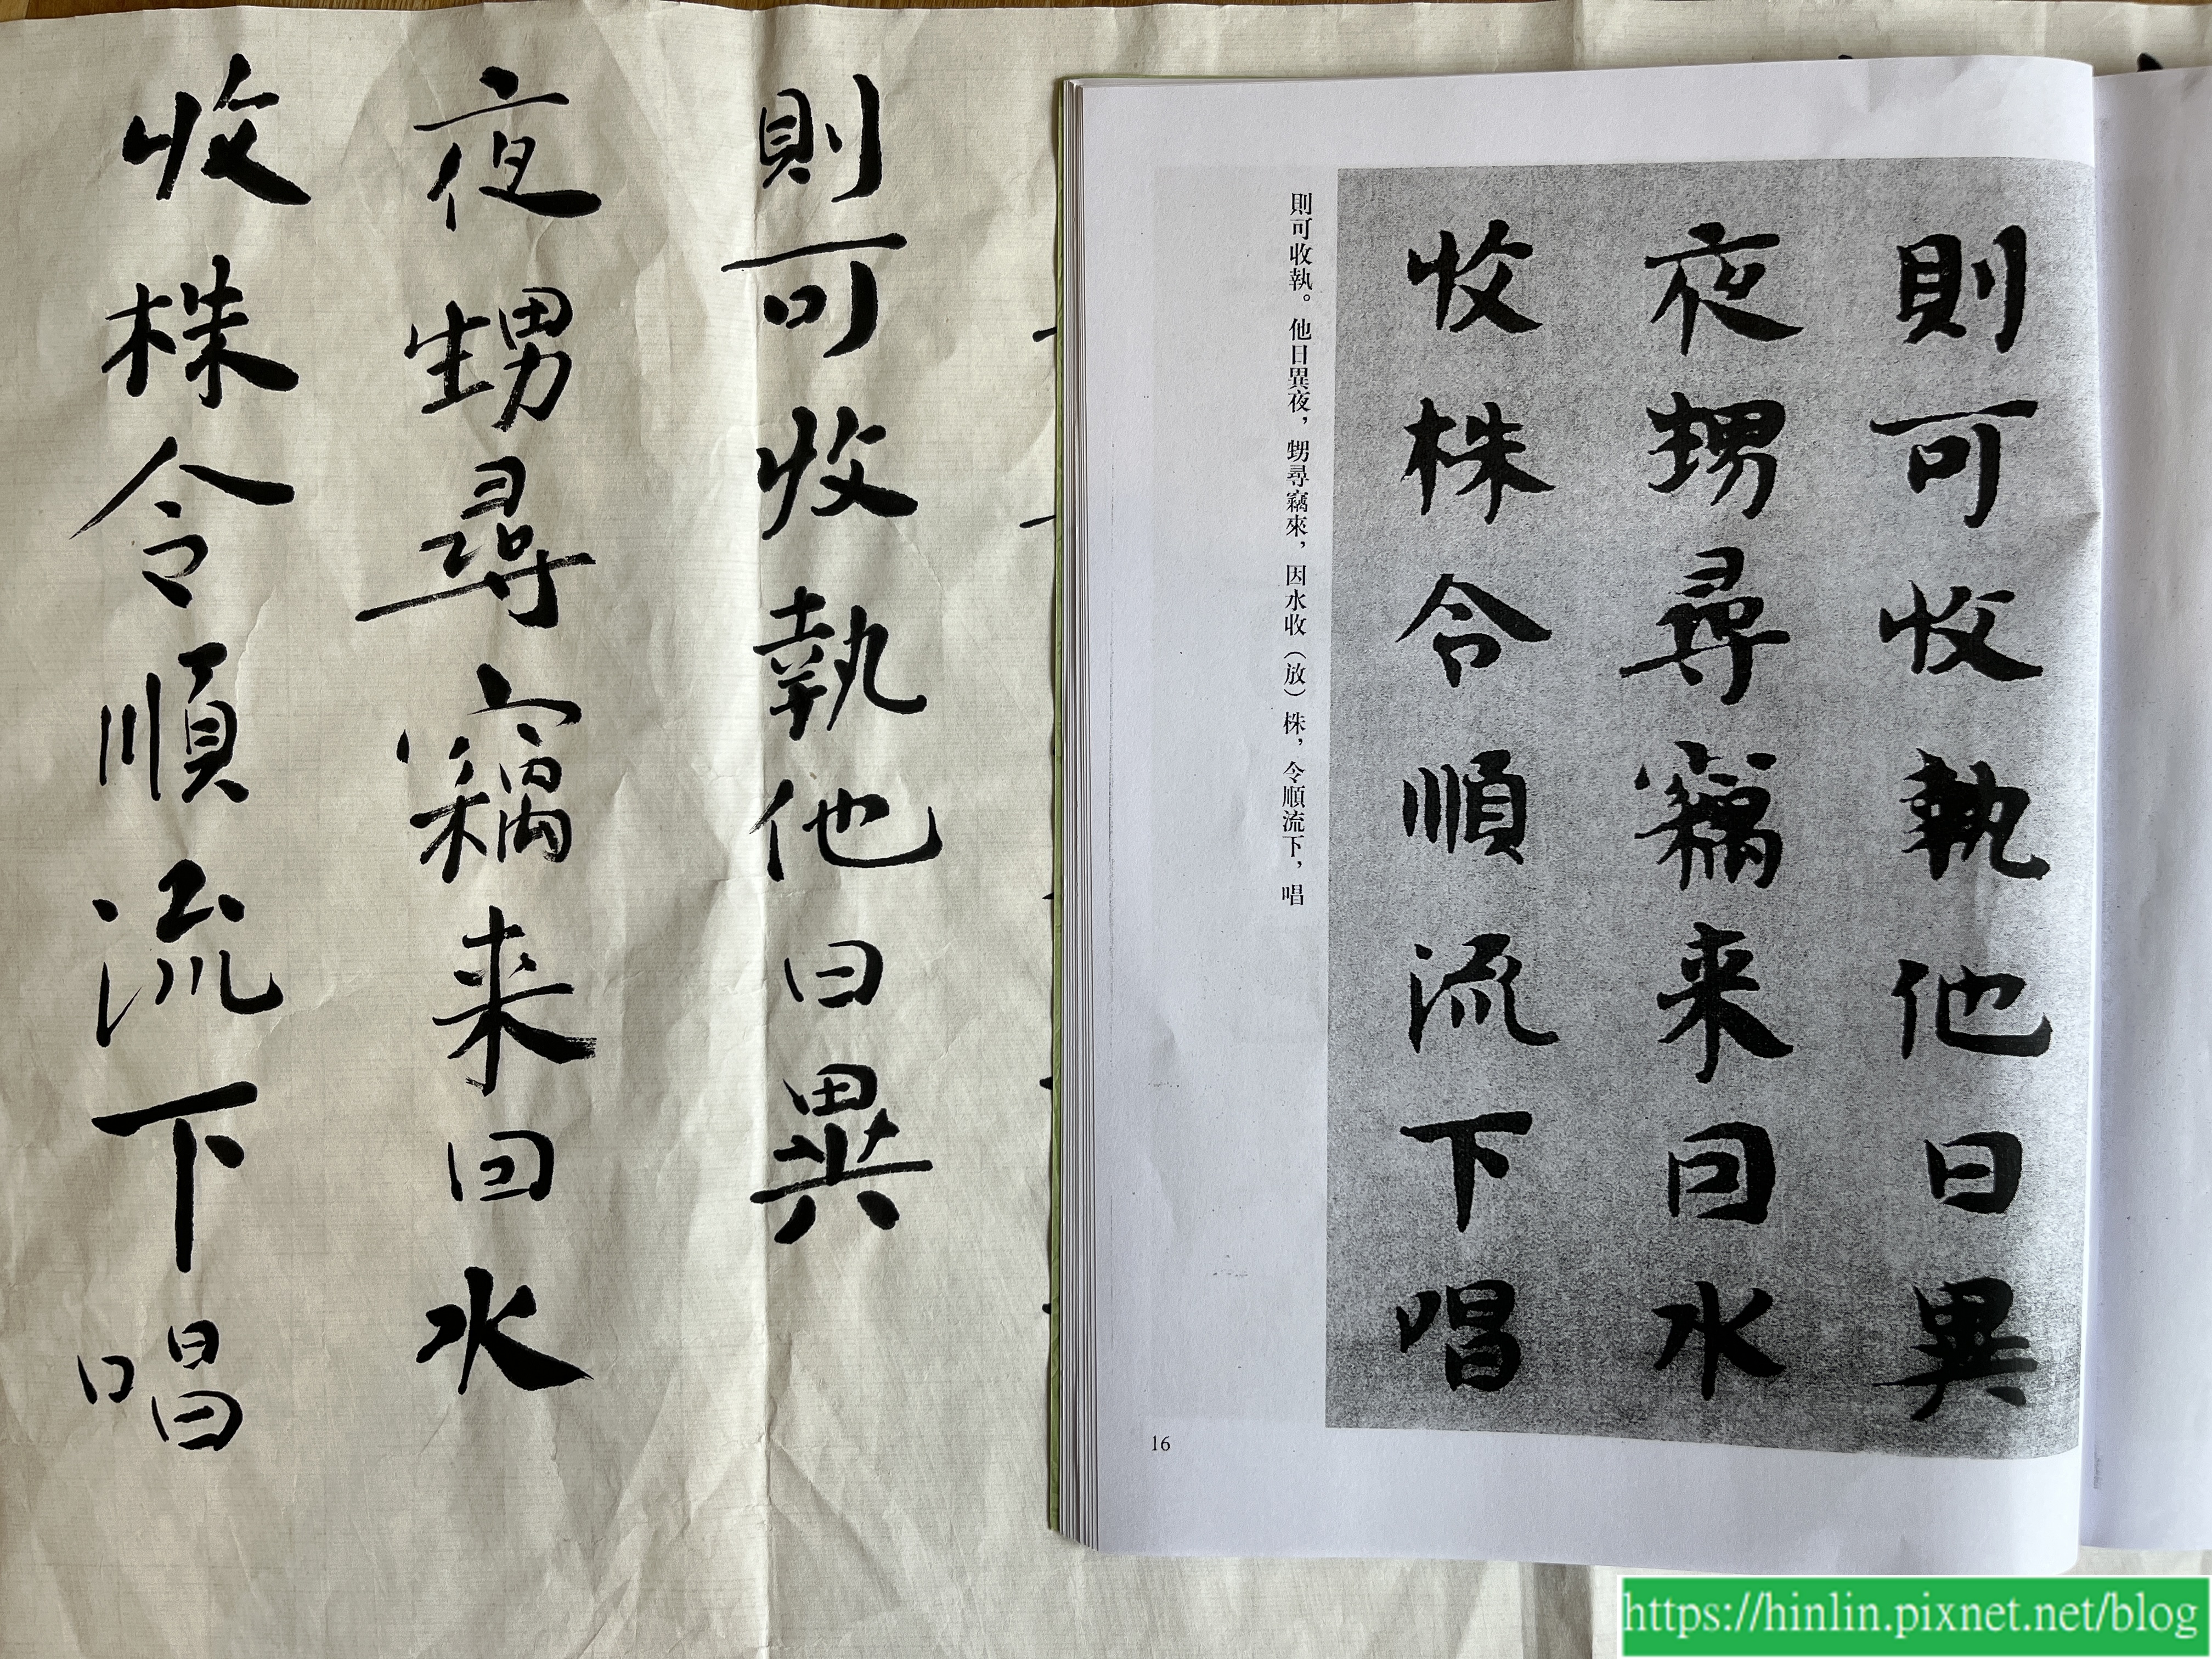 則可收執他日異
夜甥尋竊来回水
收株令順流下唱
則可收執他日異
夜甥尋竊来回水
收株合順流下唱
則可收執。他日異夜，甥尋竊來，因水收（放）株，令順流下，唱
16
https://hinlin.pixnet.net/blog